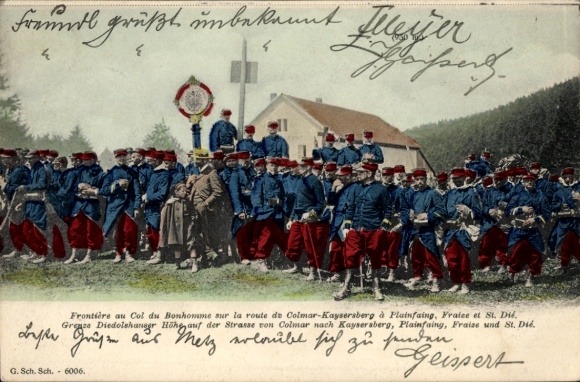 Freundl grüßt unbekannt Meyer
" " " Geissert
(950 m)
Frontière au Col du Bonhomme sur la route de Colmar-Kaysersberg à Plainfaing, Fraize et St. Dié.
Grenze Diedolshauser Höhe auf der Strasse von Colmar nach Kaysersberg, Plainfaing, Fraize und St. Dié.
Beste Grüße aus Metz erlaubt sich zu senden
Geissert
G. Sch. Sch. - 6006.